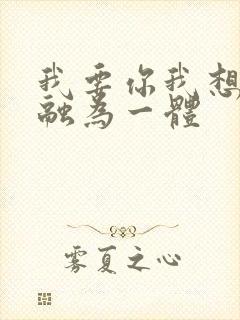 我要你我想
融為一體
雾夏之心